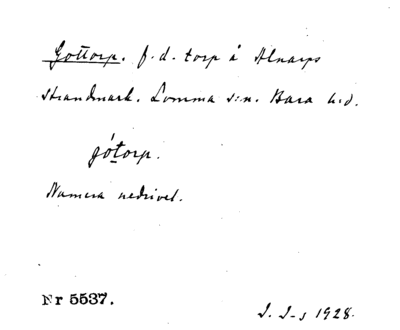 Gottorp. f.d. torp å Alnarps
strandmark. Lomma s:n. Bara h:d.
gótorp.
Numera nedrivet.
Nr 5537.
I. I-s 1928.